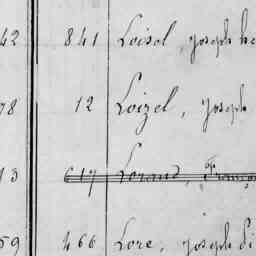 42 841 Loisol, joseph
78 12 Loizel, joseph
13 617 Lorand,
59 466 Lore, joseph